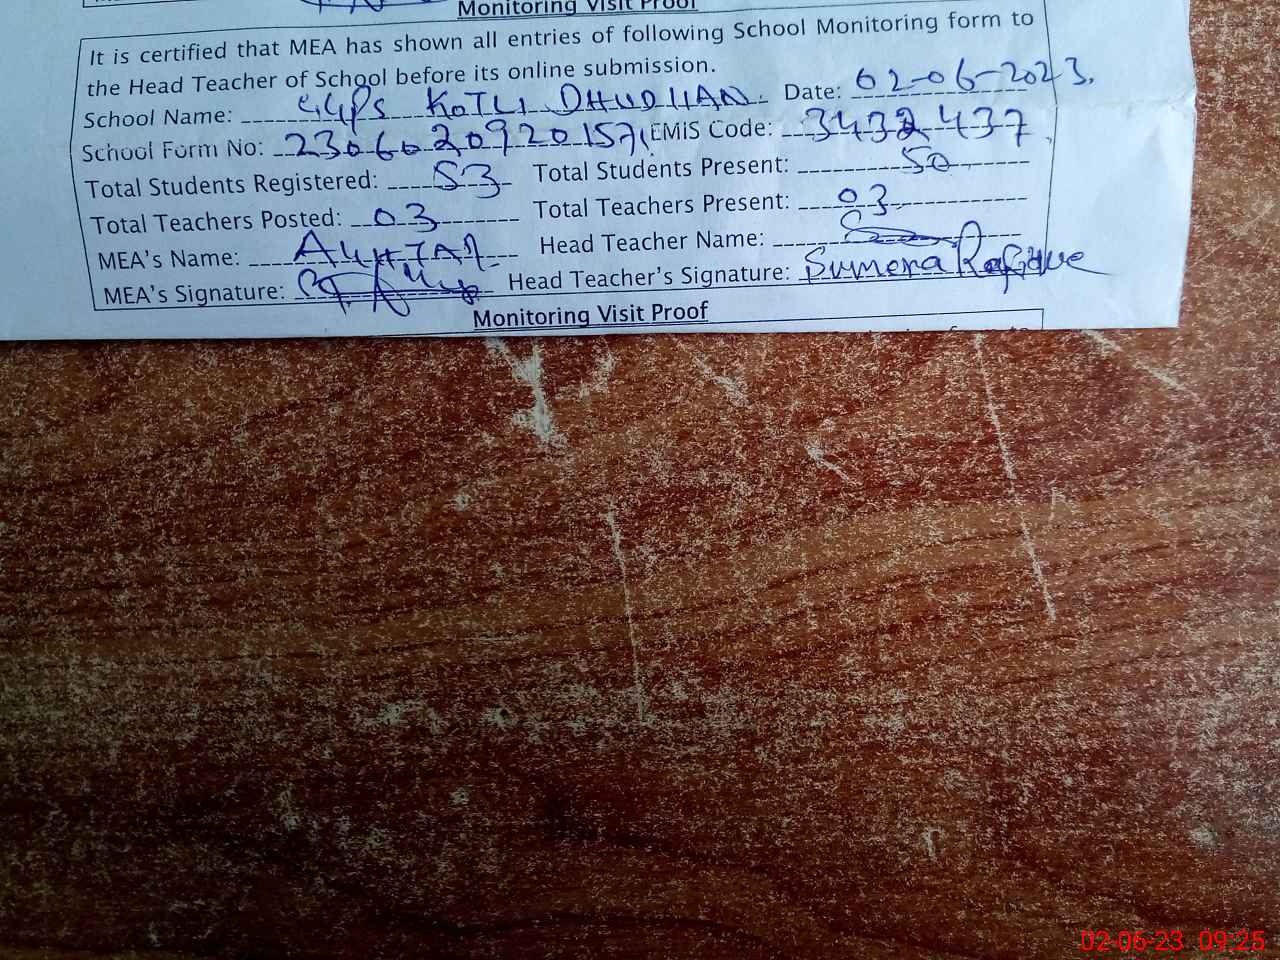 Monitoring Visit Proof
It is certified that MEA has shown all entries of following School Monitoring form to
the Head Teacher of School before its online submission.
School Name: GGPS KOTLI DHUDIAN. Date: 02-06-2023.
School Form No: EMIS Code: 3432437
Total Students Registered: 53 Total Students Present: 50
Total Teachers Posted: 03 Total Teachers Present: 03
MEA's Name: AKHTAR Head Teacher Name:
MEA's Signature: Head Teacher's Signature: Sumera Rafique
Monitoring Visit Proof
02-06-23 09:25